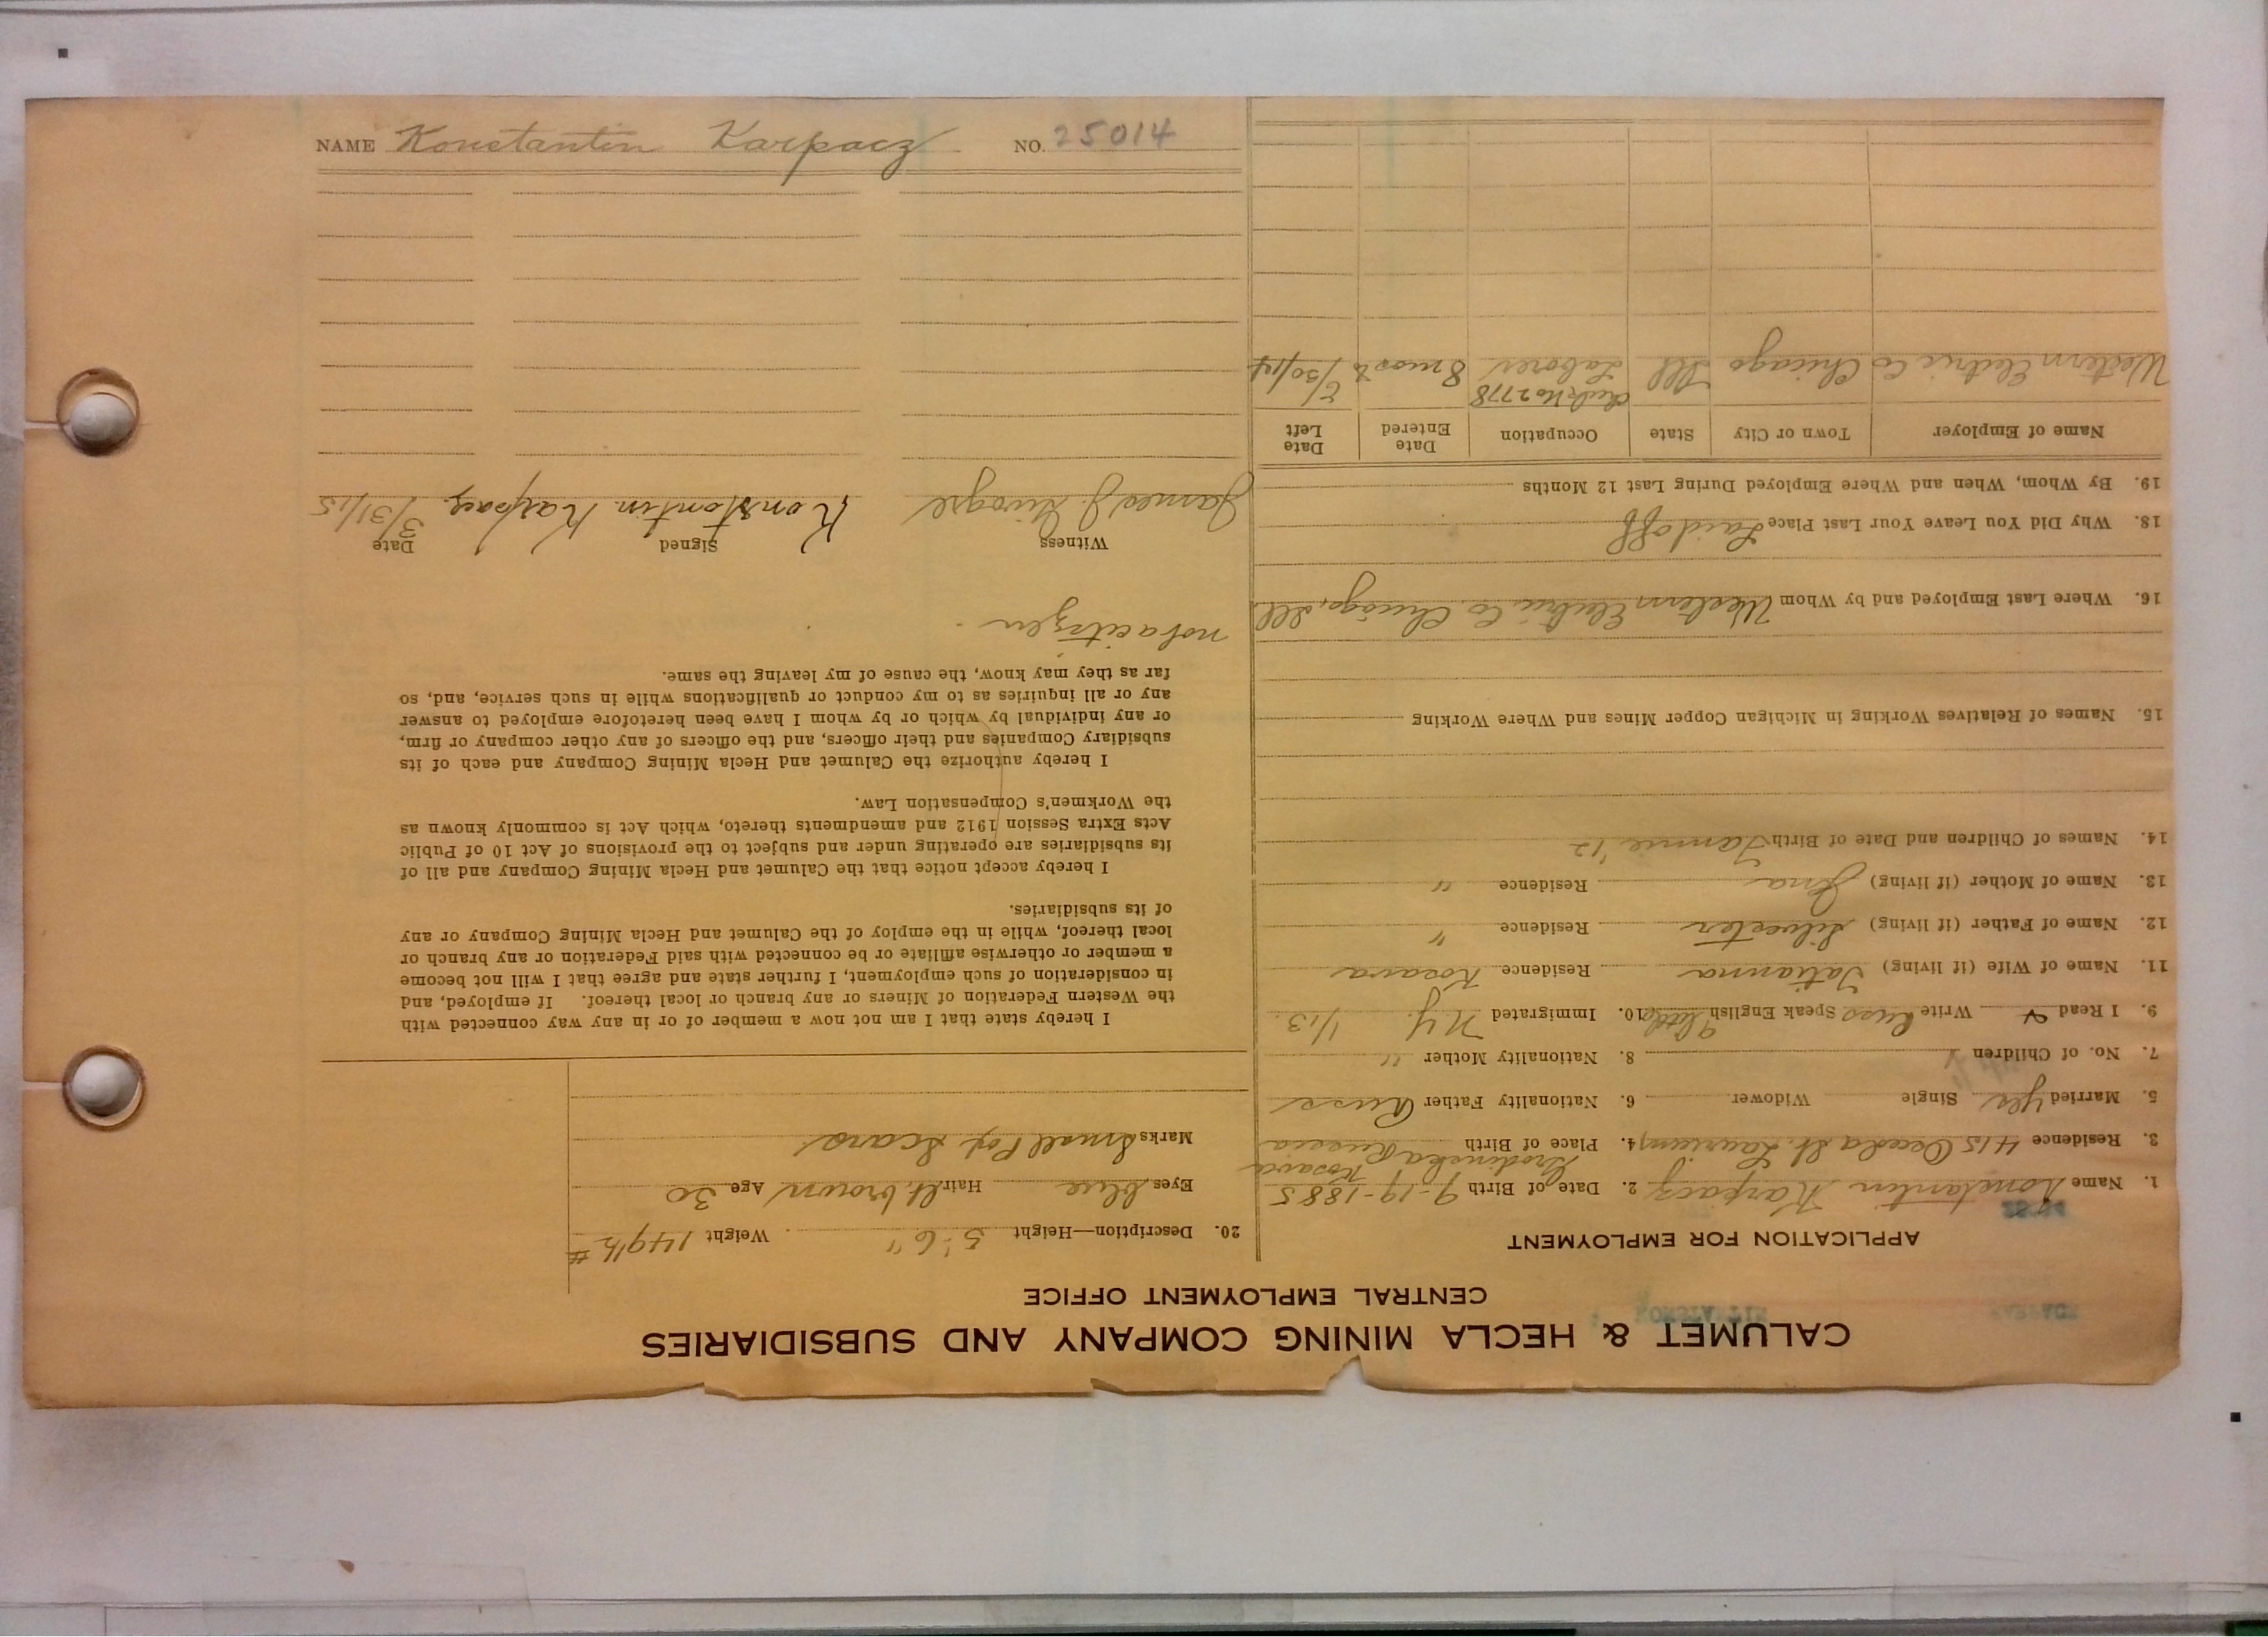 CALUMET & HECLA MINING COMPANY AND SUBSIDIARIES
CENTRAL EMPLOYMENT OFFICE
APPLICATION FOR EMPLOYMENT
1. Name Konstantin Karpacz 2. Date of Birth 9-19-1885
3. Residence 415 Oceola St. Laurium, 4. Place of Birth Grodinska Russia Kosava
5. Married yes Single Widower 6. Nationality Father Russ
7. No. of Children 1 8. Nationality Mother "
9. I Read & Write Russ Speak English little 10. Immigrated N.Y. 1/13.
11. Name of Wife (if living) Tatianna Residence Kosava
12. Name of Father (if living) Silvester Residence "
13. Name of Mother (if living) Residence "
14. Names of Children and Date of Birth '12
15. Names of Relatives Working in Michigan Copper Mines and Where Working
16. Where Last Employed and by Whom Western Electric Co. Chicago, Ill.
18. Why Did You Leave Your Last Place Laid off
19. By Whom, When and Where Employed During Last 12 Months
Name of Employer Town or City State Occupation Date Entered Date Left
Check No 2778
Western Electric Co Chicago Ill Laborer 8 mos /30/14
20. Description—Height 5' 6" Weight 149½ #
Eyes blue Hair lt. brown Age 30
Marks Small Pox Scars
I hereby state that I am not now a member of or in any way connected with
the Western Federation of Miners or any branch or local thereof. If employed, and
in consideration of such employment, I further state and agree that I will not become
a member or otherwise affiliate or be connected with said Federation or any branch or
local thereof, while in the employ of the Calumet and Hecla Mining Company or any
of its subsidiaries.
I hereby accept notice that the Calumet and Hecla Mining Company and all of
its subsidiaries are operating under and subject to the provisions of Act 10 of Public
Acts Extra Session 1912 and amendments thereto, which Act is commonly known as
the Workmen's Compensation Law.
I hereby authorize the Calumet and Hecla Mining Company and each of its
subsidiary Companies and their officers, and the officers of any other company or firm,
or any individual by which or by whom I have been heretofore employed to answer
any or all inquiries as to my conduct or qualifications while in such service, and, so
far as they may know, the cause of my leaving the same.
not a citizen
Witness Signed Date
James J. Konstontin Karpacz 3/31/15
NAME Konstantin Karpacz NO. 25014